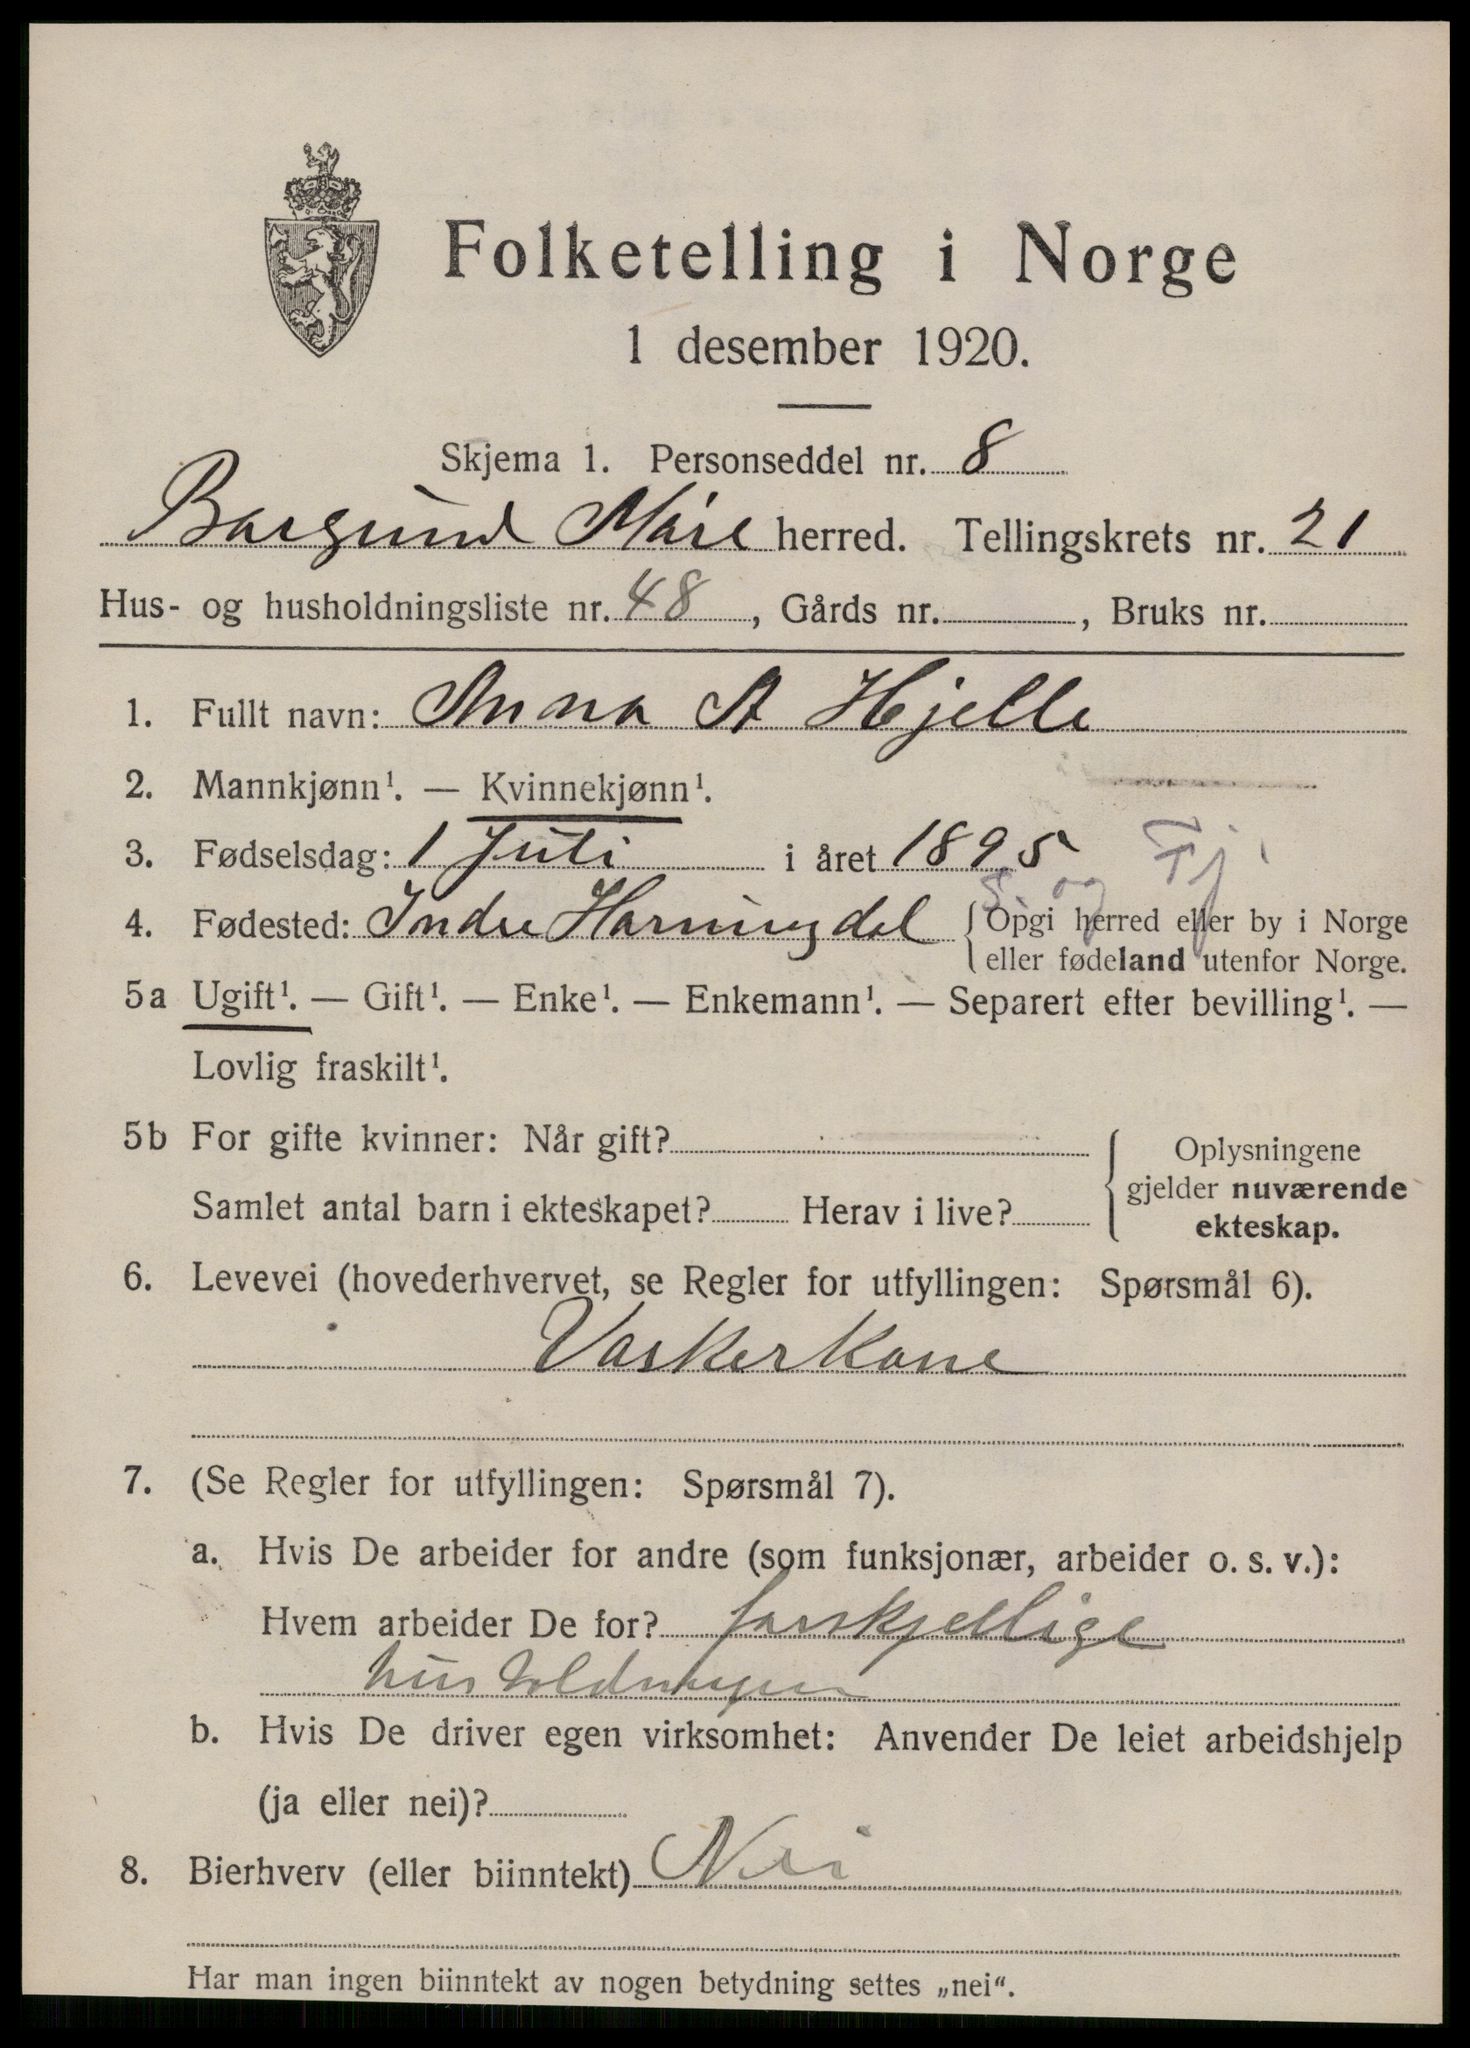 Folketelling i Norge
1 desember 1920.
Skjema 1. Personseddel nr. 8
Borgund Møre herred. Tellingskrets nr. 21
Hus- og husholdningsliste nr. 48, Gårds nr. , Bruks nr.
1. Fullt navn: Anna A Hjelle
2. Mannkjønn¹. — Kvinnekjønn¹.
3. Fødselsdag: 1 Juli i året 1895
S. og Fj.
4. Fødested: Indre Horningdal { Opgi herred eller by i Norge
eller fødeland utenfor Norge.
5a Ugift¹. — Gift¹. — Enke¹. — Enkemann¹. — Separert efter bevilling¹. —
Lovlig fraskilt¹.
5b For gifte kvinner: Når gift? { Oplysningene
gjelder nuværende
Samlet antal barn i ekteskapet? Herav i live?
ekteskap.
6. Levevei (hovederhvervet, se Regler for utfyllingen: Spørsmål 6).
Vaskerkone
7. (Se Regler for utfyllingen: Spørsmål 7).
a. Hvis De arbeider for andre (som funksjonær, arbeider o. s. v.):
Hvem arbeider De for? forskjellige
husholdninger
b. Hvis De driver egen virksomhet: Anvender De leiet arbeidshjelp
(ja eller nei)?
8. Bierhverv (eller biinntekt) Nei
Har man ingen biinntekt av nogen betydning settes „nei“.